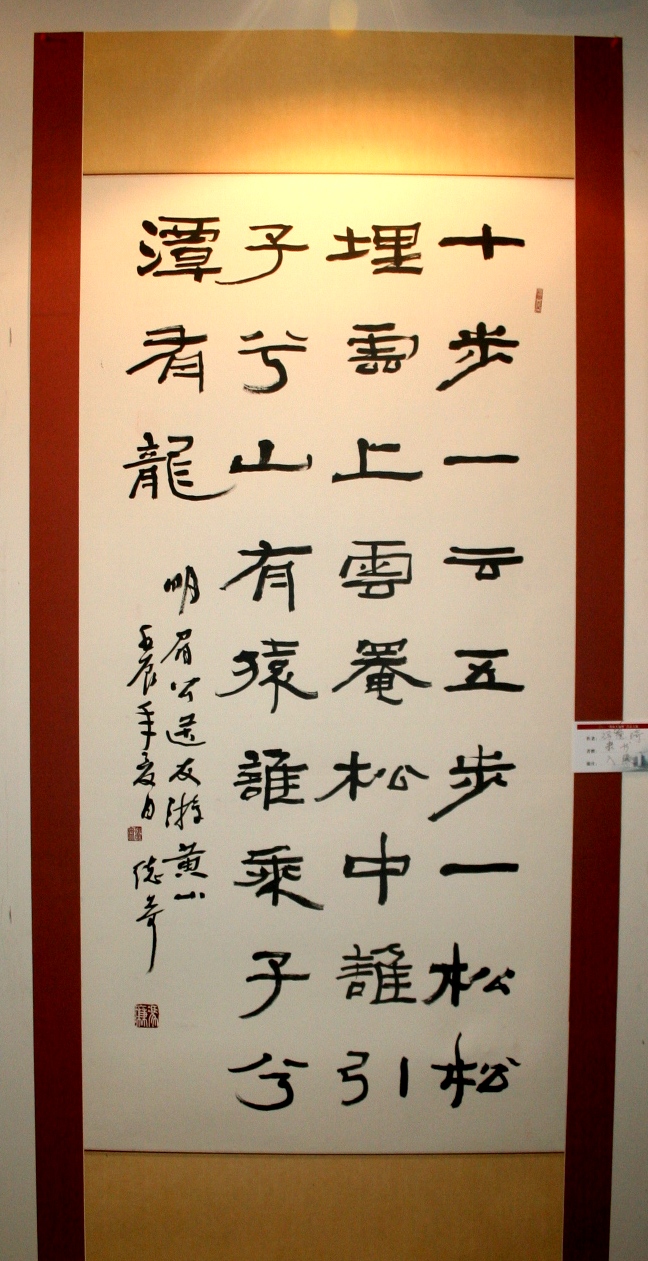 十步一云五步一松松
埋雲上雲菴松中誰引
子兮山有猿誰乘子兮
潭有龍
明眉公送友游黄山
壬辰年夏日 德奇